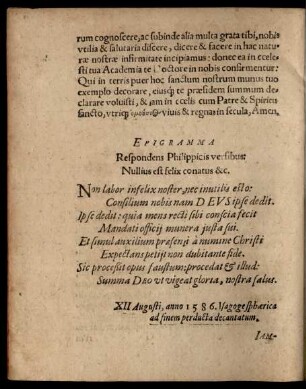 rum cognoscere, ac subinde alia multa grata tibi, nobis
vtilia & salutaria discere, dicere & facere in hac natu-
ræ nostræ infirmitate incipiamus: donec ea in cœle-
sti tua Academia te doctore in nobis confirmentur:
Qui in terris puer hoc sanctum nostrum munus tuo
exemplo decorare, eiusq́; te præsidem summum de-
clarare voluisti, & iam in cœlis cum Patre & Spiritu
sancto, vtriq́; ὁμοούσιος viuis & regnas in secula, Amen.
EPIGRAMMA
Respondens Philippicis versibus:
Nullius est felix conatus &c.
Non labor infelix noster, nec inutilis esto:
Consilium nobis nam DEVS ipse dedit.
Ipse dedit: quia mens recti sibi conscia fecit
Mandati officij munera justa sui.
Et simul auxilium præsens à numine Christi
Expectans petijt non dubitante fide.
Sic processit opus faustum: procedat & illud:
Summa DEO vt vigeat gloria, nostra salus.
XII Augusti, anno 1586. Isagoge sphærica
ad finem perducta decantatum.
IAM-